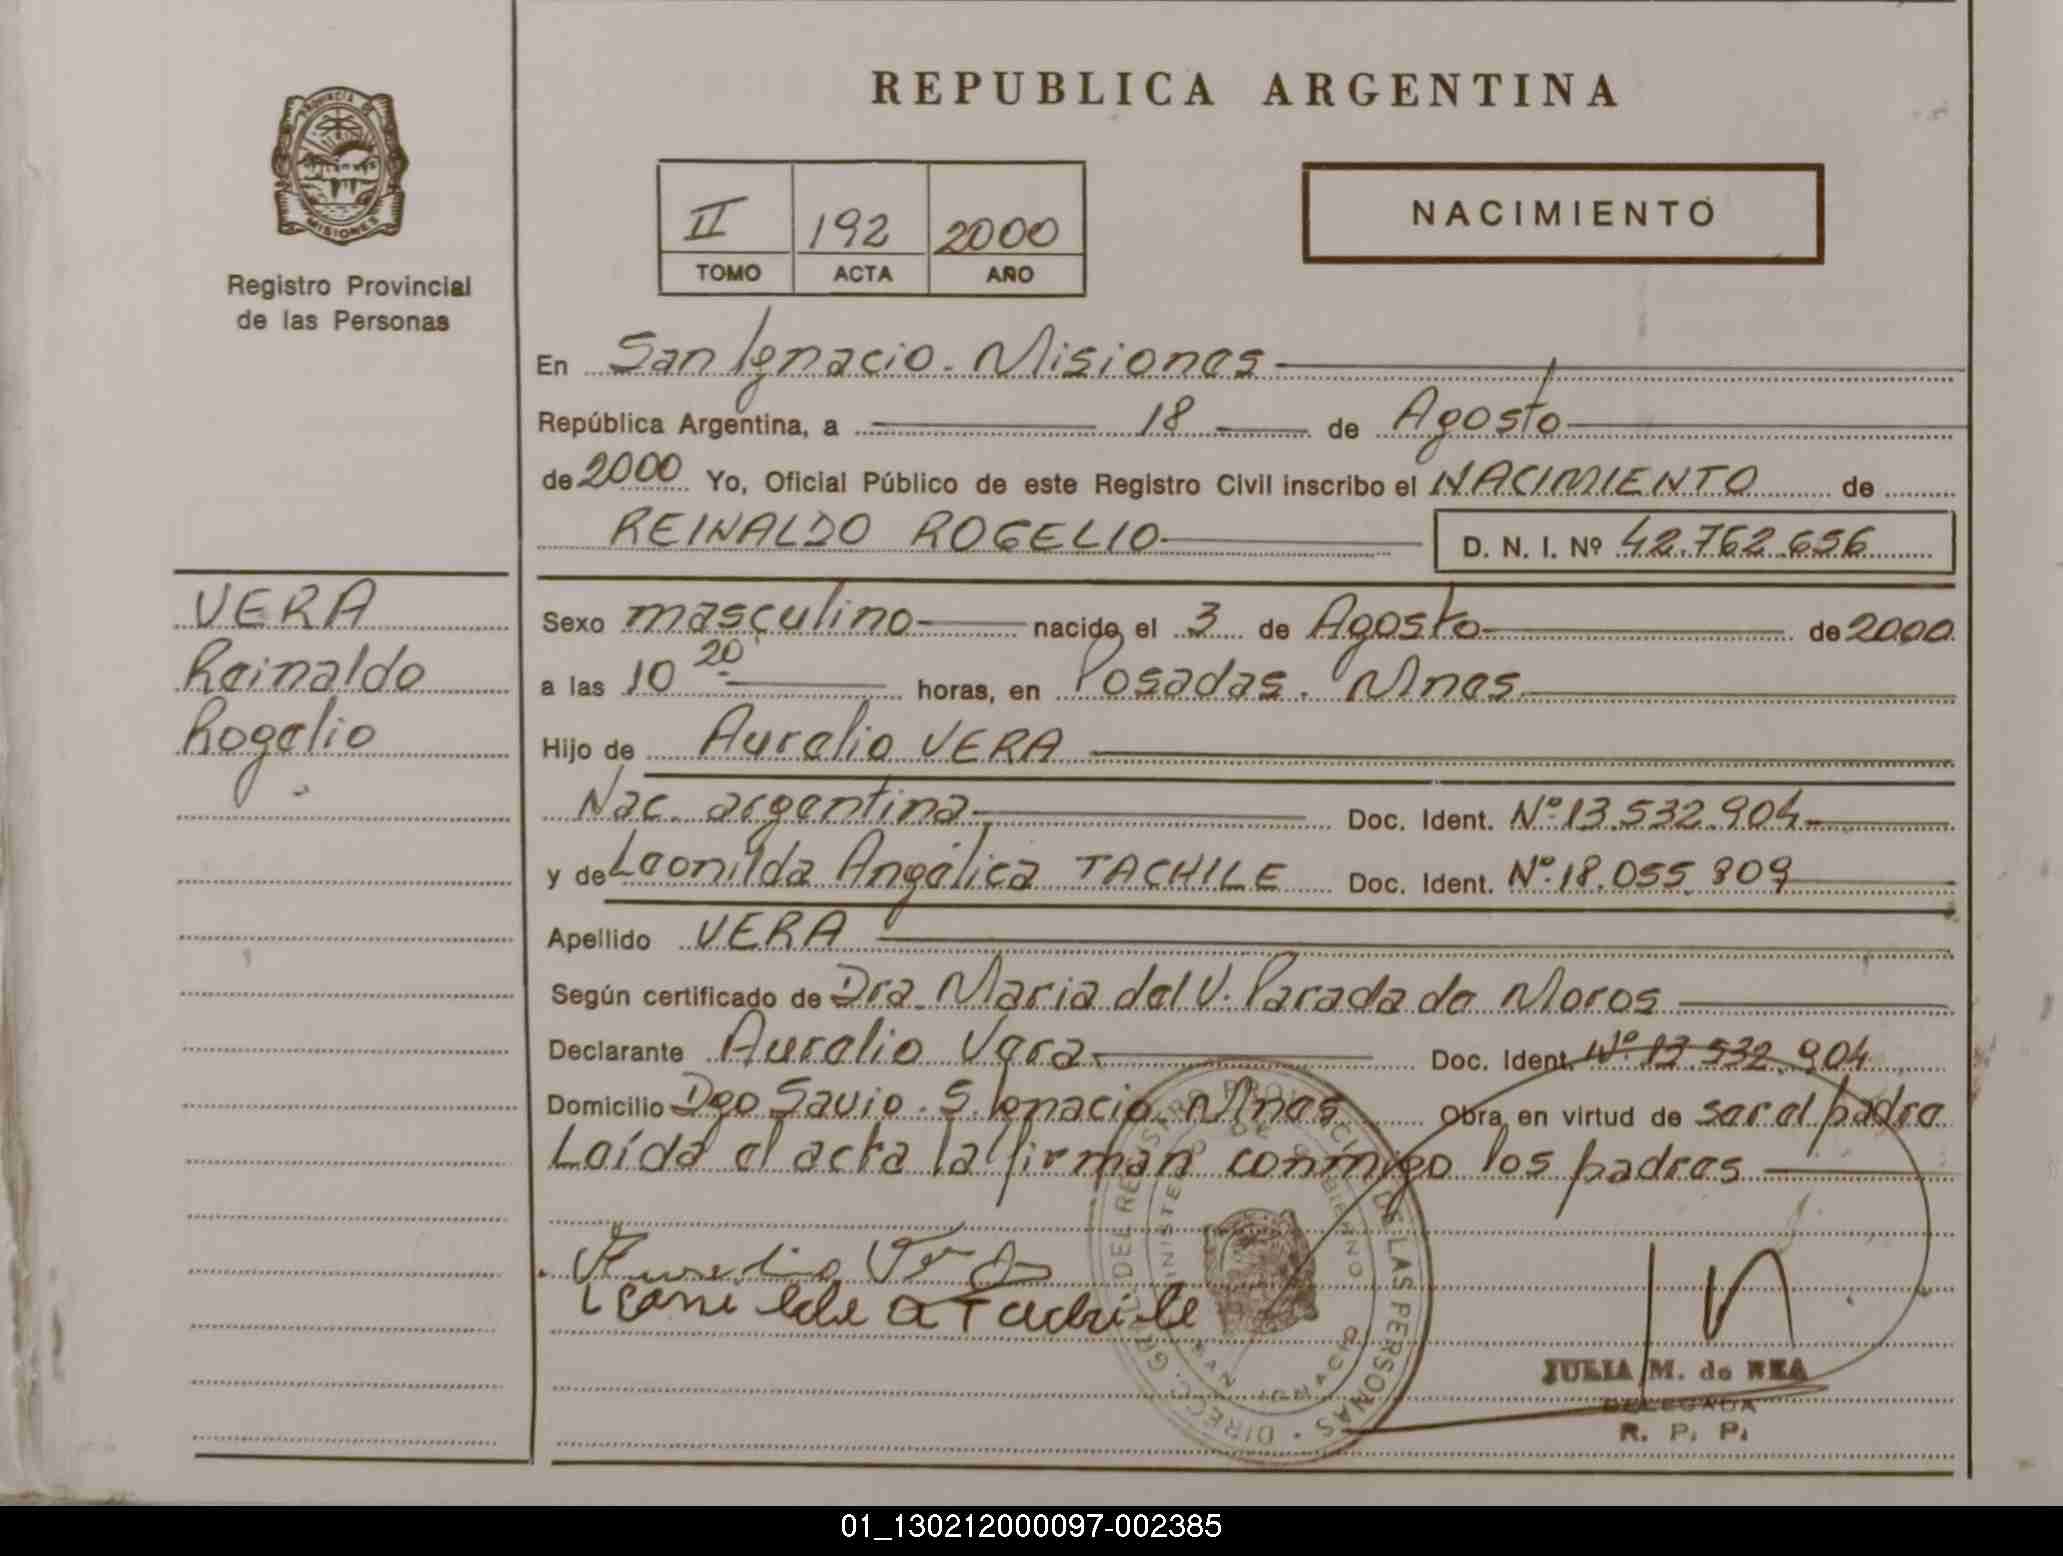 PROVINCIA DE
MISIONES
Registro Provincial
de las Personas
VERA
Reinaldo
Rogelio
REPUBLICA ARGENTINA
II 192 2000
TOMO ACTA AÑO
NACIMIENTO
En San Ignacio. Misiones
República Argentina, a 18 de Agosto
de 2000 Yo, Oficial Público de este Registro Civil inscribo el NACIMIENTO de
REINALDO ROGELIO D. N. I. Nº 42.762.656
Sexo masculino nacido el 3 de Agosto de 2000
a las 10 20 horas, en Posadas. Mnes
Hijo de Aurelio VERA
Nac. argentina Doc. Ident. Nº 13.532.904
y de Leonilda Angélica TACHILE Doc. Ident. Nº 18.055.809
Apellido VERA
Según certificado de Dra. Maria del V. Parada de Moros
Declarante Aurelio Vera Doc. Ident. Nº 13.532.904
Domicilio Dgo Savio. S. Ignacio. Mnes Obra en virtud de ser el padre
Leída el acta la firman conmigo los padres
Aurelio Vera
Leonilda A Tachile
DIREC. GRAL. DEL REGISTRO PROVINCIAL DE LAS PERSONAS
MINISTERIO DE GOBIERNO
SAN IGNACIO
JULIA M. de REA
DELEGADA
R. P. P.
01_130212000097-002385